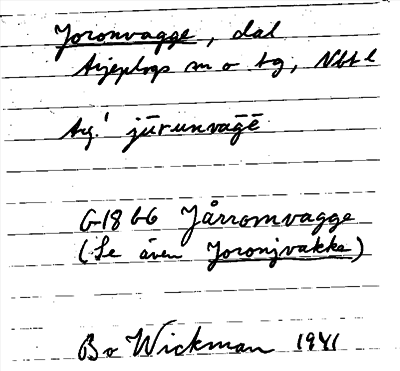 Joronvagge, dal
Arjeplogs sn o tg, Nbt l
Arj.' jūrunvāgē
G-18 GG Jårromvagge
(Se även Joronjvakke)
Bo Wickman 1941